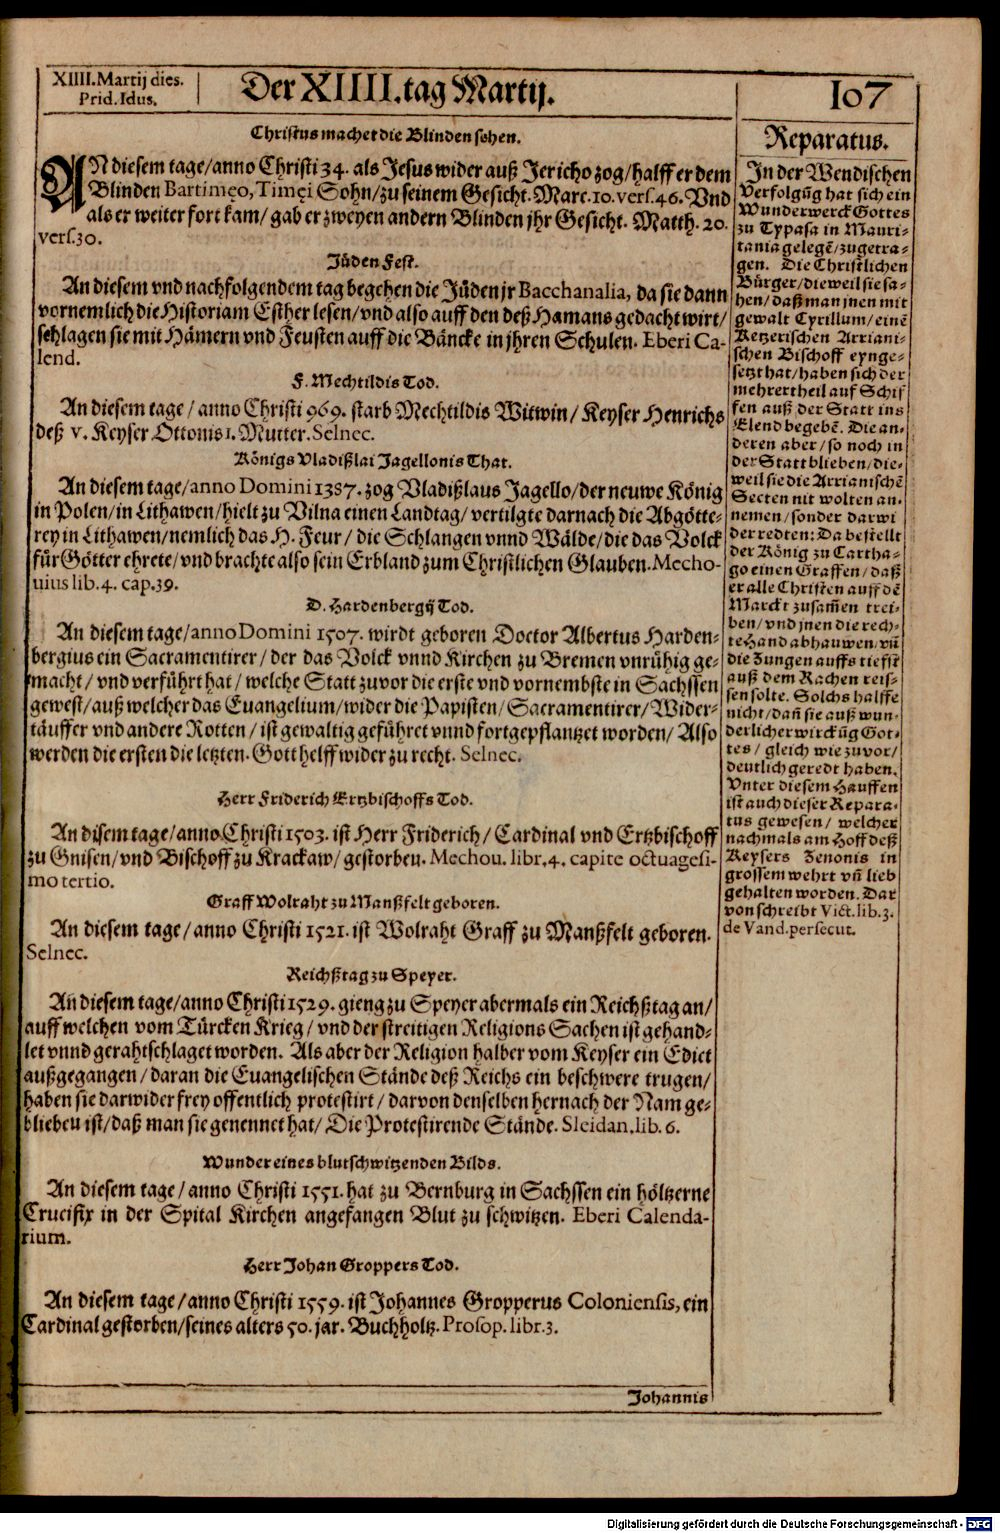 XIIII. Martij dies.
Prid. Idus.
Der XIIII. tag Martij.
107
Christus machet die Blinden sehen.
AN diesem tage/anno Christi 34. als Jesus wider auß Jericho zog/halff er dem
Blinden Bartimęo, Timęi Sohn/zu seinem Gesicht. Marc. 10. vers. 46. Vnd
als er weiter fort kam/ gab er zweyen andern Blinden jhr Gesicht. Matth. 20.
vers. 30.
Jüden Fest.
An diesem vnd nachfolgendem tag begehen die Jüden jr Bacchanalia, da sie dann
vornemlich die Historiam Esther lesen/vnd also auff den deß Hamans gedacht wirt/
schlagen sie mit Hämern vnd Feusten auff die Bäncke in jhren Schulen. Eberi Ca-
lend.
F. Mechtildis Tod.
An diesem tage / anno Christi 969. starb Mechtildis Witwin/ Keyser Henrichs
deß v. Keyser Ottonis 1. Mutter. Selnec.
Königs Vladißlai Jagellonis That.
An diesem tage/anno Domini 1387. zog Vladißlaus Jagello/der neuwe König
in Polen/in Lithawen/hielt zu Vilna einen Landtag/ vertilgte darnach die Abgötte-
rey in Lithawen/nemlich das H. Feur/ die Schlangen vnnd Wälde/die das Volck
für Götter ehrete/vnd brachte also sein Erbland zum Christlichen Glauben. Mecho-
uius lib. 4. cap. 39.
D. Hardenbergij Tod.
An diesem tage/anno Domini 1507. wirdt geboren Doctor Albertus Harden-
bergius ein Sacramentirer / der das Volck vnnd Kirchen zu Bremen vnrühig ge-
macht/ vnd verführt hat/ welche Statt zuvor die erste vnd vornembste in Sachssen
gewest/auß welcher das Euangelium/wider die Papisten/Sacramentirer/Wider-
täuffer vnd andere Rotten / ist gewaltig geführet vnnd fortgepflantzet worden/ Also
werden die ersten die letzten. Gott helff wider zu recht. Selnec.
Herr Friderich Ertzbischoffs Tod.
An disem tage/anno Christi 1503. ist Herr Friderich/ Cardinal vnd Ertzbischoff
zu Gnisen/vnd Bischoff zu Krackaw/gestorben. Mechou. libr. 4. capite octuagesi-
mo tertio.
Graff Wolraht zu Manßfelt geboren.
An diesem tage/anno Christi 1521. ist Wolraht Graff zu Manßfelt geboren.
Selnec.
Reichßtag zu Speyer.
An diesem tage/anno Christi 1529. gieng zu Speyer abermals ein Reichßtag an/
auff welchen vom Türcken Krieg/ vnd der streitigen Religions Sachen ist gehand-
let vnnd gerahtschlaget worden. Als aber der Religion halber vom Keyser ein Edict
außgegangen/daran die Euangelischen Stände deß Reichs ein beschwere trugen/
haben sie darwider frey offentlich protestirt/ darvon denselben hernach der Nam ge-
blieben ist/daß man sie genennet hat/ Die Protestirende Stände. Sleidan. lib. 6.
Wunder eines blutschwitzenden Bilds.
An diesem tage/anno Christi 1551. hat zu Bernburg in Sachssen ein höltzerne
Crucifix in der Spital Kirchen angefangen Blut zu schwitzen. Eberi Calenda-
rium.
Herr Johan Groppers Tod.
An diesem tage/anno Christi 1559. ist Johannes Gropperus Coloniensis, ein
Cardinal gestorben/seines alters 50. jar. Buchholtz. Prosop. libr. 3.
Johannis
Reparatus.
In der Wendischen
Verfolgūg hat sich ein
Wunderwerck Gottes
zu Typasa in Mauri-
tania gelegē/zugetra-
gen. Die Christlichen
Bürger/dieweil sie sa-
hen/daß man jnen mit
gewalt Cyrillum/einē
Ketzerischen Arriani-
schen Bischoff eynge-
setzt hat/haben sich der
mehrertheil auf Schif
fen auß der Statt ins
Elend begebē. Die an-
deren aber/so noch in
der Statt blieben/die-
weil sie die Arrianischē
Secten nit wolten an-
nemen/sonder darwi
der redten: Da bestellt
der König zu Cartha-
go einen Graffen/daß
er alle Christen auff dē
Marckt zusam̄en trei-
ben/vnd jnen die rech-
te Hand abhauwen/vn̄
die Zungen auffs tieffst
auß dem Rachen reis-
sen solte. Solchs halffe
nicht/dan̄ sie auß wun-
derlicher wirckūg Got-
tes/ gleich wie zuvor/
deutlich geredt haben.
Vnter diesem Hauffen
ist auch dieser Repara-
tus gewesen/ welcher
nachmals am Hoff deß
Keysers Zenonis in
grossem wehrt vn̄ lieb
gehalten worden. Dar
von schreibt Vict. lib. 3.
de Vand. persecut.
Digitalisierung gefördert durch die Deutsche Forschungsgemeinschaft - DFG